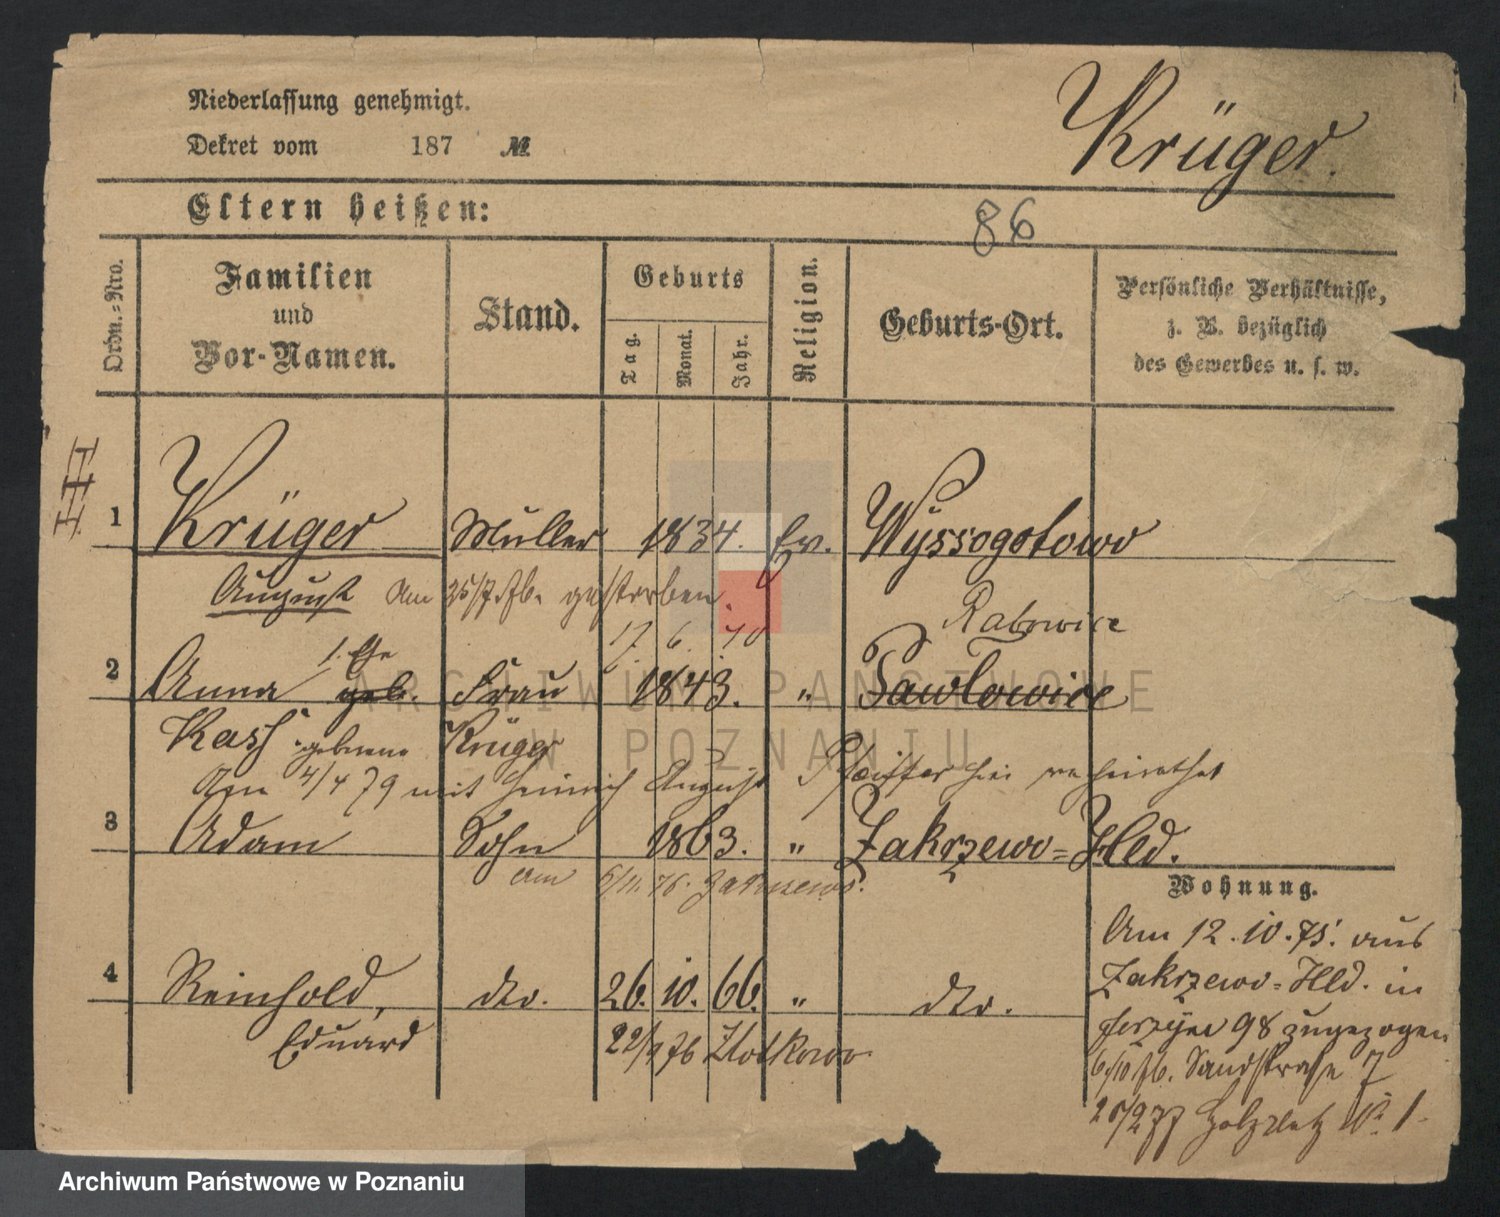 Niederlassung genehmigt.
Dekret vom 187 №
Krüger.
Eltern heißen:
86
Ordn.-Nro.
Familien
und
Vor-Namen.
Stand.
Geburts
Tag.
Monat.
Jahr.
Religion.
Geburts-Ort.
Persönliche Verhältnisse,
z. B. bezüglich
des Gewerbes u. s. w.
1 Krüger Müller 1834. Ev. Wyssogotowo
August Am 25/7 76 gestorben.
17. 6. 40 Ratowice
1. Ehe
2 Anna geb. Frau 1843. " Pawlowice
Kass geborene Krüger
Am 4/4 79 mit Heinrich August Pfeiffer hier verheirathet
3 Adam Sohn 1863. " Zakrzewo-Hld.
am 6/11. 76. Zakrzewo.
Wohnung.
Am 12.10.75. aus
Zakrzewo-Hld. in
4 Reinhold, dto. 26. 10. 66. " dto.
Jerzyce 98 zugezogen
Eduard 22/9 76 Zlotkowo
6/10 76. Sandstraße 7
28/2 77 Holzplatz № 1
ARCHIWUM PAŃSTWOWE
W POZNANIU
Archiwum Państwowe w Poznaniu